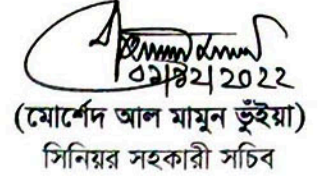 2022
(মোর্শেদ আল মামুন ভুঁইয়া)
সিনিয়র সহকারী সচিব